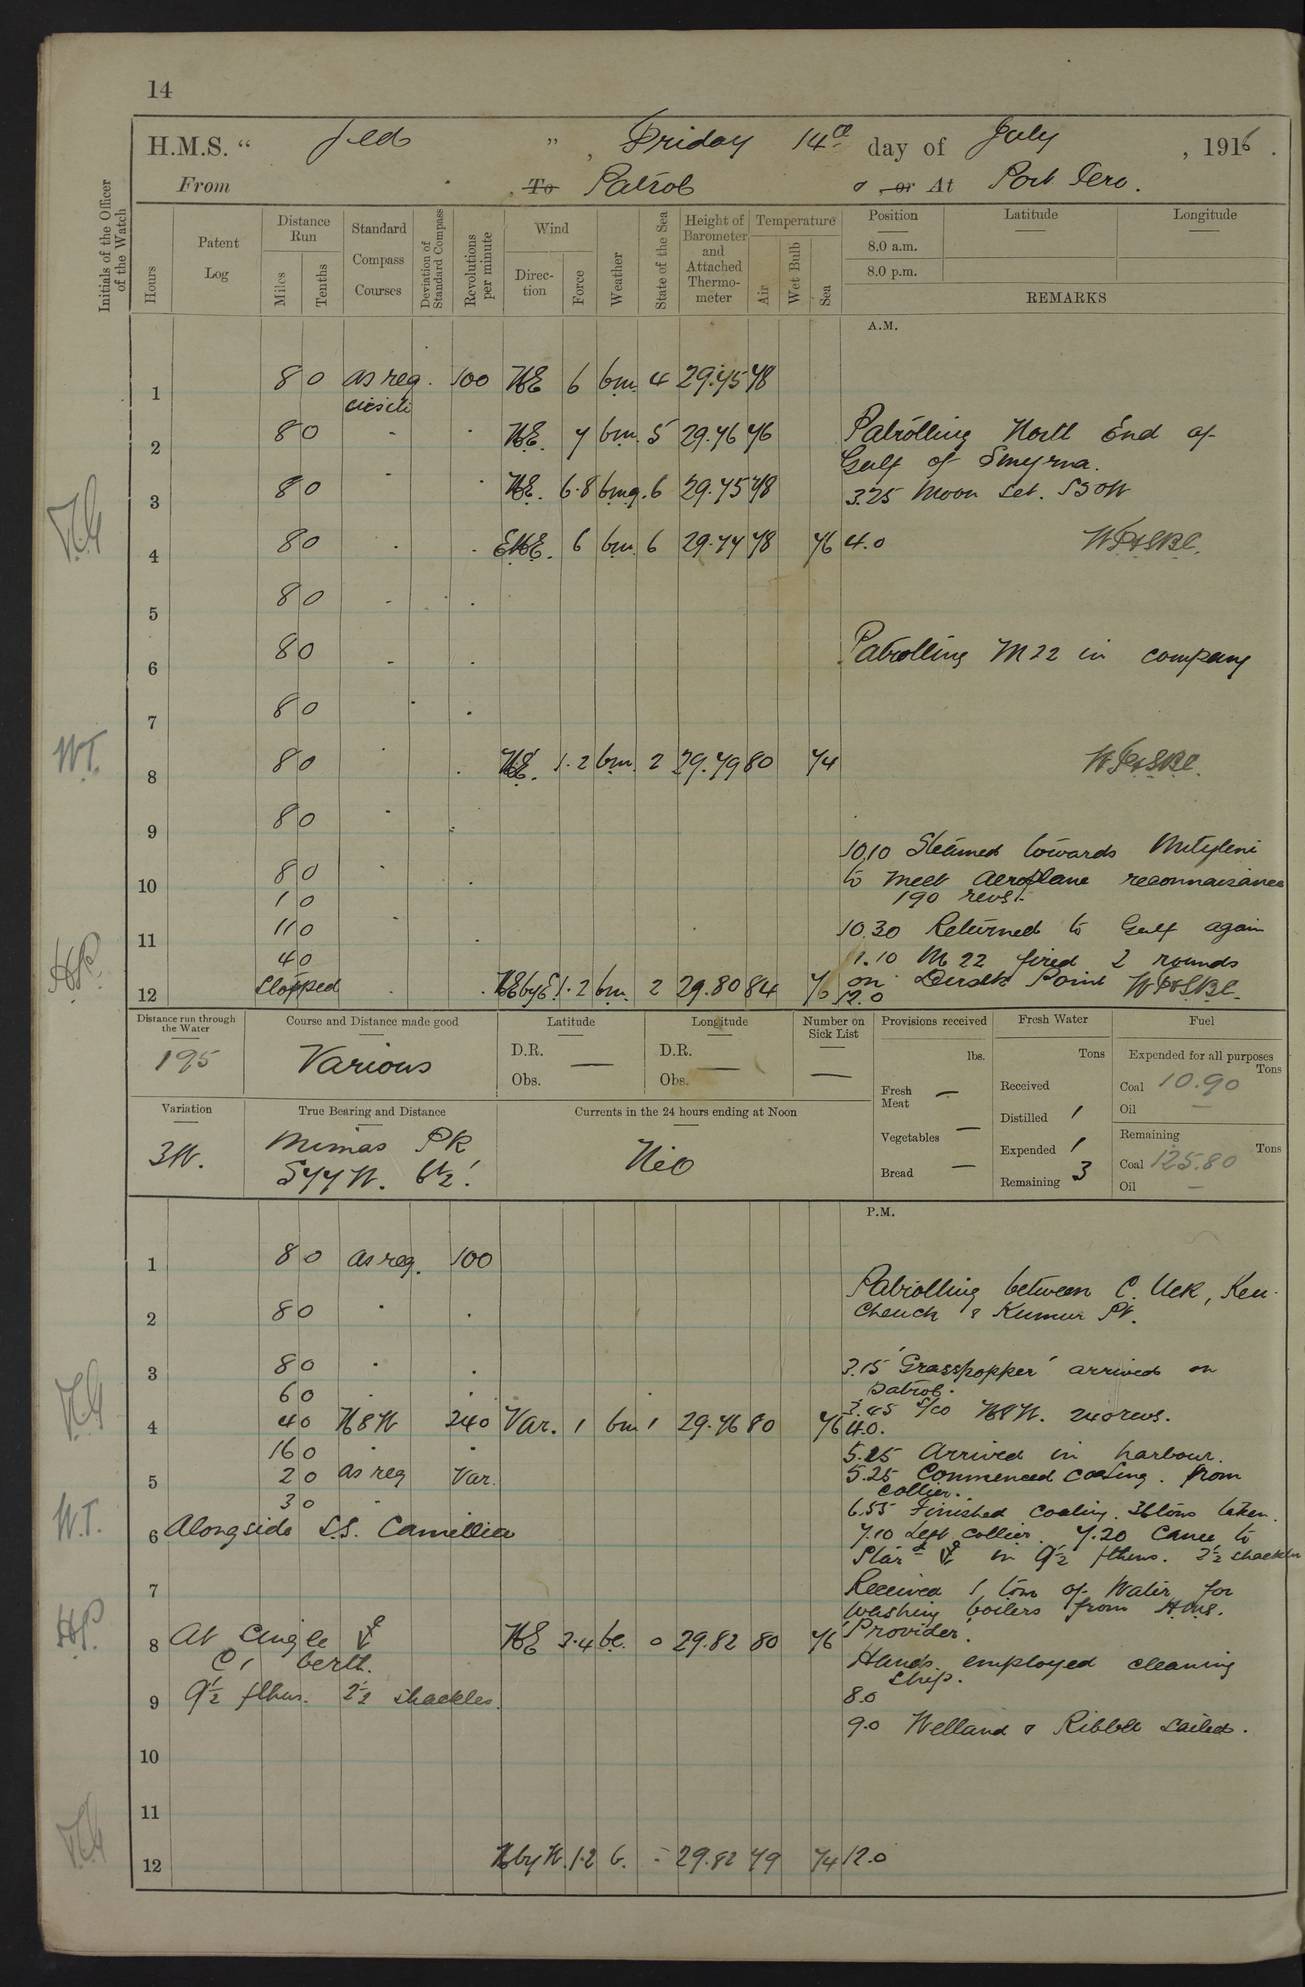 14
H.M.S. " Jed ", Friday 14th day of July, 1916.
From To Patrol & or At Port Iero.
Initials of the Officer of the Watch
Hours
Patent Log
Distance Run
Miles
Tenths
Standard Compass Courses
Deviation of Standard Compass
Revolutions per minute
Wind
Direction
Force
Weather
State of the Sea
Height of Barometer and Attached Thermometer
Temperature
Air
Wet Bulb
Sea
Position
Latitude
Longitude
8.0 a.m.
8.0 p.m.
REMARKS
A.M.
1 8 0 as req. 100 NE 6 bm. 4 29.75 78
2 8 0 NE. 7 bm. 5 29.76 76 Patrolling North End of
Gulf of Smyrna.
3 8 0 NE. 6.8 bmq. 6 29.75 78 3.25 Moon Set. S50W
4 8 0 ENE. 6 bm. 6 29.74 78 76 4.0 WP&SBC.
5 8 0
6 8 0 Patrolling M22 in company
7 8 0
8 8 0 NE. 1.2 bm. 2 29.79 80 74 WP&SBC.
9 8 0
10.10 Steamed towards Mityleni
10 8 0 to meet aeroplane reconnaisance
1 0 190 revs.
11 11 0 10.30 Returned to Gulf again
4 0 11.10 M22 fired 2 rounds
12 Stopped NEbyE 1.2 bm. 2 29.80 84 76 on Point WP&SBC.
12.0
Distance run through the Water
195
Course and Distance made good
Various
Latitude
D.R. —
Obs.
Longitude
D.R. —
Obs.
Number on Sick List
—
Provisions received
lbs.
Fresh Meat —
Vegetables —
Bread —
Fresh Water
Tons
Received
Distilled 1
Expended 1
Remaining 3
Fuel
Expended for all purposes
Tons
Coal 10.90
Oil —
Remaining
Tons
Coal 125.80
Oil —
Variation
3W.
True Bearing and Distance
Mimas Pk
S77W. 6½'
Currents in the 24 hours ending at Noon
Nil
P.M.
1 8 0 as req. 100
Patrolling between C. Uek, Keu-
2 8 0 cheuck & Kumur Pt.
3 8 0 3.15 'Grasshopper' arrived on
6 0 patrol.
3.45 a/co N8W. 240 revs.
4 4 0 N8W 240 Var. 1 bm 1 29.76 80 76 4.0.
16 0 5.15 Arrived in harbour.
5 2 0 as req Var. 5.25 Commenced coaling from
3 0 collier.
6.55 Finished coaling. 36 tons taken.
6 Alongside S.S. Camellia 7.10 Left collier. 7.20 Came to
Starᵈ ⚓ in 9½ fthms. 2½ shackles
7 Received 1 ton of Water for
washing boilers from H.M.S.
8 At Single ⚓ NE 3.4 bc. 0 29.82 80 76 'Provider'.
C1 berth. Hands employed cleaning
9 9½ fthms. 2½ shackles. ship.
8.0
9.0 Welland & Ribble sailed.
10
11
12 NbyW. 1.2 b. - 29.82 79 74 12.0
W.T.
HP.
W.T.
HP.